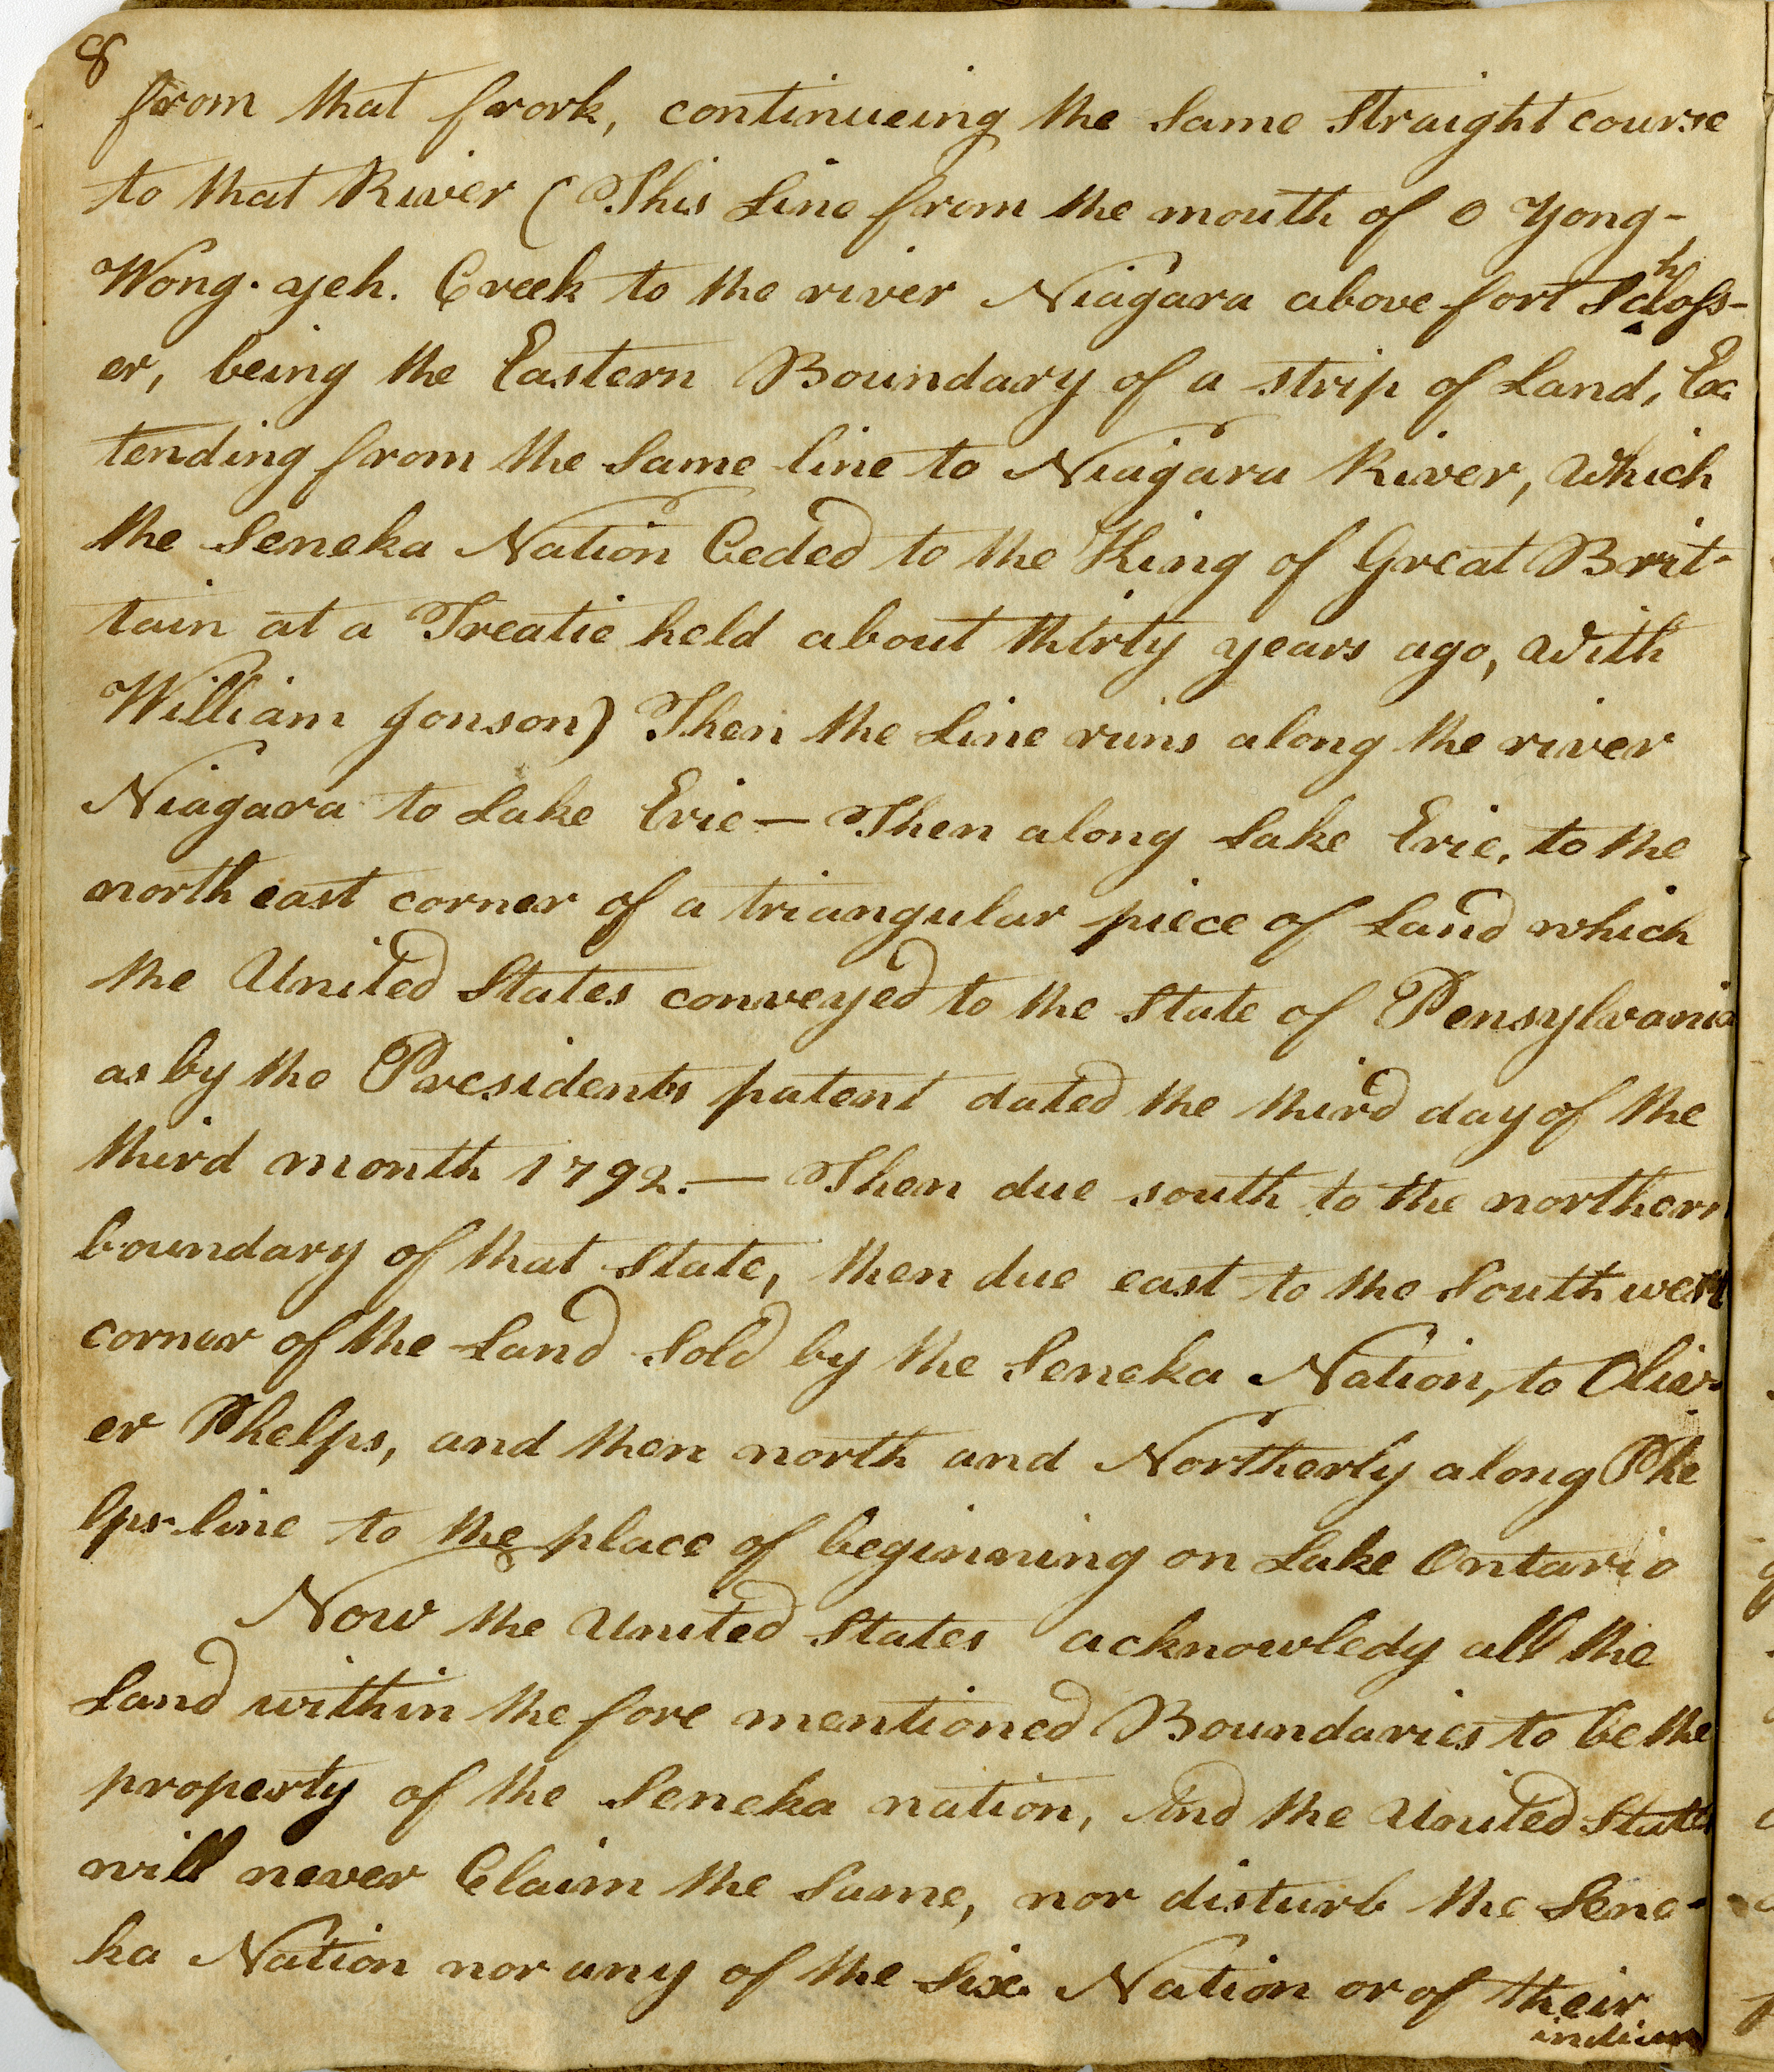 8
from that frork, continueing the Same Straight course
to that River (This Line from the mouth of O Yong-
Wong. yeh. Creek to the river Niagara above fort Schloss-
er, being the Eastern Boundary of a strip of Land, Ex-
tending from the Same line to Niagara River, Which
the Seneka Nation Ceded to the King of Great Brit-
tain at a Treatie held about thirty years ago, With
William Jonson) Then the Line runs along the river
Niagara to Lake Erie — Then along Lake Erie, to the
north east corner of a triangular piece of Land which
the United States conveyed to the State of Pensylvania
as by the Presidents patent dated the third day of the
third month 1792. — Then due south to the northern
boundary of that State, then due east to the South west
corner of the Land Sold by the Seneka Nation, to Oliv-
er Phelps, and then north and Northerly along Phe
lps line to the place of beginning on Lake Ontario
Now the United States acknowledy all the
Land within the fore mentioned Boundaries to be the
property of the Seneka nation, And the United States
will never Claim the Same, nor disturb the Sene-
ka Nation nor any of the Six Nation or of their
indian